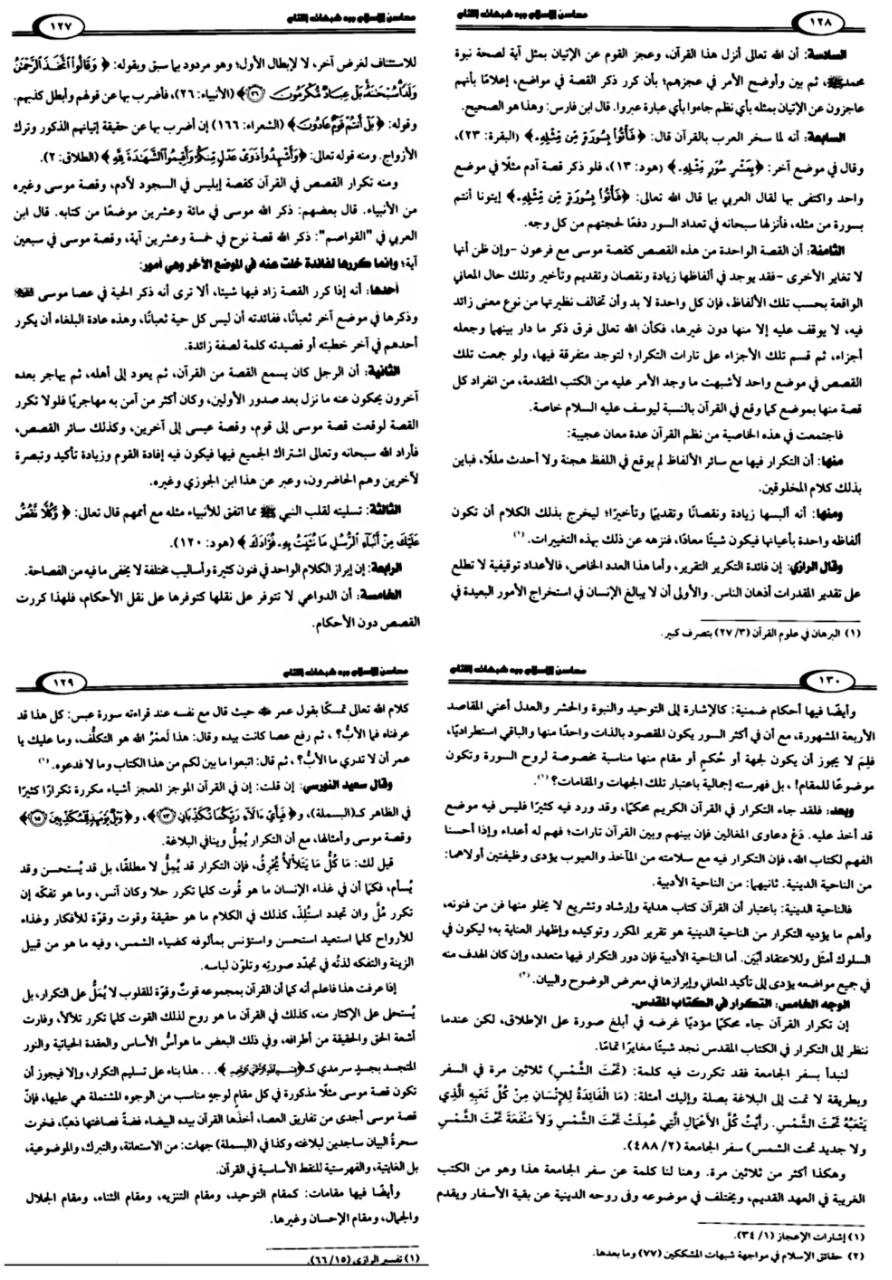 محاسن الإسلام ورد شبهات اللئام
١٢٧
للاستئناف لغرض آخر، لا لإبطال الأول؛ وهو مردود بما سبق وبقوله: ﴿ وَقَالُوا اتَّخَذَ الرَّحْمَنُ
وَلَدًا سُبْحَانَهُ بَلْ عِبَادٌ مُّكْرَمُونَ (٢٦)﴾ (الأنبياء: ٢٦)، فأضرب بها عن قولهم وأبطل كذبهم.
وقوله: ﴿بَلْ أَنتُمْ قَوْمٌ عَادُونَ﴾ (الشعراء: ١٦٦) إن أضرب بها عن حقيقة إتيانهم الذكور وترك
الأزواج. ومنه قوله تعالى: ﴿وَأَشْهِدُوا ذَوَىْ عَدْلٍ مِّنكُمْ وَأَقِيمُوا الشَّهَادَةَ لِلَّهِ﴾ (الطلاق: ٢).
ومنه تكرار القصص في القرآن كقصة إبليس في السجود لآدم، وقصة موسى وغيره
من الأنبياء. قال بعضهم: ذكر الله موسى في مائة وعشرين موضعًا من كتابه. قال ابن
العربي في "القواصم": ذكر الله قصة نوح في خمسة وعشرين آية، وقصة موسى في سبعين
آية؛ وإنما كررها لفائدة خلت عنه في الموضع الآخر وهي أمور:
أحدها: أنه إذا كرر القصة زاد فيها شيئا، ألا ترى أنه ذكر الحية في عصا موسى
وذكرها في موضع آخر ثعبانًا، ففائدته أن ليس كل حية ثعبانًا، وهذه عادة البلغاء أن يكرر
أحدهم في آخر خطبته أو قصيدته كلمة لصفة زائدة.
الثانية: أن الرجل كان يسمع القصة من القرآن، ثم يعود إلى أهله، ثم يهاجر بعده
آخرون يحكون عنه ما نزل بعد صدور الأولين، وكان أكثر من آمن به مهاجريًا فلولا تكرر
القصة لوقعت قصة موسى إلى قوم، وقصة عيسى إلى آخرين، وكذلك سائر القصص،
فأراد الله سبحانه وتعالى اشتراك الجميع فيها فيكون فيه إفادة القوم وزيادة تأكيد وتبصرة
لآخرين وهم الحاضرون، وعبر عن هذا ابن الجوزي وغيره.
الثالثة: تسليته لقلب النبي ﷺ مما اتفق للأنبياء مثله مع أممهم قال تعالى: ﴿ وَكُلًّا نَّقُصُّ
عَلَيْكَ مِنْ أَنبَاءِ الرُّسُلِ مَا نُثَبِّتُ بِهِ فُؤَادَكَ ﴾ (هود: ١٢٠).
الرابعة: إن إبراز الكلام الواحد في فنون كثيرة وأساليب مختلفة لا يخفى ما فيه من الفصاحة.
الخامسة: أن الدواعي لا تتوفر على نقلها كتوفرها على نقل الأحكام، فلهذا كررت
القصص دون الأحكام.
محاسن الإسلام ورد شبهات اللئام
١٢٨
السادسة: أن الله تعالى أنزل هذا القرآن، وعجز القوم عن الإتيان بمثل آية لصحة نبوة
محمد ﷺ، ثم بين وأوضح الأمر في عجزهم؛ بأن كرر ذكر القصة في مواضع، إعلامًا بأنهم
عاجزون عن الإتيان بمثله بأي نظم جاءوا بأي عبارة عبروا. قال ابن فارس: وهذا هو الصحيح.
السابعة: أنه لما سخر العرب بالقرآن قال: ﴿فَأْتُوا بِسُورَةٍ مِّن مِّثْلِهِ﴾ (البقرة: ٢٣)،
وقال في موضع آخر: ﴿بِعَشْرِ سُوَرٍ مِّثْلِهِ﴾ (هود: ١٣)، فلو ذكر قصة آدم مثلًا في موضع
واحد واكتفى بها لقال العربي بما قال الله تعالى: ﴿فَأْتُوا بِسُورَةٍ مِّن مِّثْلِهِ﴾ إيتونا أنتم
بسورة من مثله، فأنزلها سبحانه في تعداد السور دفعًا لحجتهم من كل وجه.
الثامنة: أن القصة الواحدة من هذه القصص كقصة موسى مع فرعون -وإن ظن أنها
لا تغاير الأخرى -فقد يوجد في ألفاظها زيادة ونقصان وتقديم وتأخير وتلك حال المعاني
الواقعة بحسب تلك الألفاظ، فإن كل واحدة لا بد وأن تخالف نظيرتها من نوع معنى زائد
فيه، لا يوقف عليه إلا منها دون غيرها، فكأن الله تعالى فرق ذكر ما دار بينهما وجعله
أجزاء، ثم قسم تلك الأجزاء على تارات التكرار؛ لتوجد متفرقة فيها، ولو جمعت تلك
القصص في موضع واحد لأشبهت ما وجد الأمر عليه من الكتب المتقدمة، من انفراد كل
قصة منها بموضع كما وقع في القرآن بالنسبة ليوسف عليه السلام خاصة.
فاجتمعت في هذه الخاصية من نظم القرآن عدة معان عجيبة:
منها: أن التكرار فيها مع سائر الألفاظ لم يوقع في اللفظ هجنة ولا أحدث مللا، فباين
بذلك كلام المخلوقين.
ومنها: أنه ألبسها زيادة ونقصانًا وتقديمًا وتأخيرًا؛ ليخرج بذلك الكلام أن تكون
ألفاظه واحدة بأعيانها فيكون شيئًا معادًا، فنزهه عن ذلك بهذه التغييرات. (١)
وقال الرازي: إن فائدة التكرير التقرير، وأما هذا العدد الخاص، فالأعداد توقيفية لا تطلع
على تقدير المقدرات أذهان الناس. والأولى أن لا يبالغ الإنسان في استخراج الأمور البعيدة في
(١) البرهان في علوم القرآن (٣/ ٢٧) بتصرف كبير.
محاسن الإسلام ورد شبهات اللئام
١٢٩
كلام الله تعالى تمسكًا بقول عمر حيث قال مع نفسه عند قراءته سورة عبس: كل هذا قد
عرفناه فما الأبُّ؟ ، ثم رفع عصا كانت بيده وقال: هذا لَعَمْرُ الله هو التكلُّف، وما عليك يا
عمر أن لا تدري ما الأبُّ؟ ، ثم قال: اتبعوا ما بين لكم من هذا الكتاب وما لا فدعوه. (١)
وقال سعيد النورسي: إن قلت: إن في القرآن الموجز المعجز أشياء مكررة تكرارًا كثيرًا
في الظاهر كـ(البسملة)، و﴿فَبِأَيِّ آلَاءِ رَبِّكُمَا تُكَذِّبَانِ (١٣)﴾، و﴿وَيْلٌ يَوْمَئِذٍ لِّلْمُكَذِّبِينَ (١٥)﴾
وقصة موسى وأمثالها، مع أن التكرار يُمِلُّ وينافي البلاغة.
قيل لك: مَا كُلُّ مَا يَتَلَأْلَأُ يُحْرِقُ، فإن التكرار قد يُمِلُّ لا مطلقًا، بل قد يُستحسن وقد
يُسأم، فكما أن في غذاء الإنسان ما هو قُوت كلما تكرر حلا وكان آنس، وما هو تفكّه إن
تكرر مُلَّ وإن تجدد استُلِذّ، كذلك في الكلام ما هو حقيقة وقوت وقوّة للأفكار وغذاء
للأرواح كلما استعيد استحسن واستؤنس بمألوفه كضياء الشمس، وفيه ما هو من قبيل
الزينة والتفكه لذتُه في تجدّد صورته وتلوّن لباسه.
إذا عرفت هذا فاعلم أنه كما أن القرآن بمجموعه قوتٌ وقوّة للقلوب لا يُمَلُّ على التكرار، بل
يُستحلى على الإكثار منه، كذلك في القرآن ما هو روح لذلك القوت كلما تكرر تلألأ، وفارت
أشعة الحق والحقيقة من أطرافه، وفي ذلك البعض ما هو أسُّ الأساس والعقدة الحياتية والنور
المتجسد بجسدٍ سرمدي كـ﴿بسم الله الرحمن الرحيم﴾... هذا بناء على تسليم التكرار، وإلا فيجوز أن
تكون قصة موسى مثلًا مذكورة في كل مقامٍ لوجهٍ مناسب من الوجوه المشتملة هي عليها، فإنّ
قصة موسى أجدى من تفاريق العصا، أخذَها القرآن بيده البيضاء فضةً فصاغتها ذهبًا، فخرت
سحرةُ البيان ساجدين لبلاغته وكذا في (البسملة) جهات: من الاستعانة، والتبرك، والموضوعية،
بل الغايتية، والفهرستية للنقط الأساسية في القرآن.
وأيضًا فيها مقامات: كمقام التوحيد، ومقام التنزيه، ومقام الثناء، ومقام الجلال
والجمال، ومقام الإحسان وغيرها.
(١) تفسير الرازي (١٥/ ٦٦).
محاسن الإسلام ورد شبهات اللئام
١٣٠
وأيضًا فيها أحكام ضمنية: كالإشارة إلى التوحيد والنبوة والحشر والعدل أعني المقاصد
الأربعة المشهورة، مع أن في أكثر السور يكون المقصود بالذات واحدًا منها والباقي استطراديًا،
فلِمَ لا يجوز أن يكون لجهة أو حُكمٍ أو مقام منها مناسبة مخصوصة لروح السورة وتكون
موضوعًا للمقام! ، بل فهرسته إجمالية باعتبار تلك الجهات والمقامات؟ (١).
وبعد: فلقد جاء التكرار في القرآن الكريم محكمًا، وقد ورد فيه كثيرًا فليس فيه موضع
قد أخذ عليه. دَعْ دعاوى المغالين فإن بينهم وبين القرآن تارات؛ فهم له أعداء وإذا أحسنا
الفهم لكتاب الله، فإن التكرار فيه مع سلامته من المآخذ والعيوب يؤدى وظيفتين أولاهما:
من الناحية الدينية. ثانيهما: من الناحية الأدبية.
فالناحية الدينية: باعتبار أن القرآن كتاب هداية وإرشاد وتشريع لا يخلو منها فن من فنونه،
وأهم ما يؤديه التكرار من الناحية الدينية هو تقرير المكرر وتوكيده وإظهار العناية به؛ ليكون في
السلوك أمثل وللاعتقاد أبْيَن. أما الناحية الأدبية فإن دور التكرار فيها متعدد، وإن كان الهدف منه
في جميع مواضعه يؤدى إلى تأكيد المعاني وإبرازها في معرض الوضوح والبيان. (٢)
الوجه الخامس: التكرار في الكتاب المقدس.
إن تكرار القرآن جاء محكمًا مؤديًا غرضه في أبلغ صورة على الإطلاق، لكن عندما
ننظر إلى التكرار في الكتاب المقدس نجد شيئًا مغايرًا تمامًا.
لنبدأ بسفر الجامعة فقد تكررت فيه كلمة: (تَحْتَ الشَّمْسِ) ثلاثين مرة في السفر
وبطريقة لا تمت إلى البلاغة بصلة وإليك أمثلة: (مَا الْفَائِدَةُ لِلإِنْسَانِ مِنْ كُلِّ تَعَبِهِ الَّذِي
يَتْعَبُهُ تَحْتَ الشَّمْسِ. رَأَيْتُ كُلَّ الأَعْمَالِ الَّتِي عُمِلَتْ تَحْتَ الشَّمْسِ وَلاَ مَنْفَعَةَ تَحْتَ الشَّمْسِ
ولا جديد تحت الشمس) سفر الجامعة (٢/ ٤٨٨).
وهكذا أكثر من ثلاثين مرة. وهنا لنا كلمة عن سفر الجامعة هذا وهو من الكتب
الغريبة في العهد القديم، ويختلف في موضوعه وفى روحه الدينية عن بقية الأسفار ويقدم
(١) إشارات الإعجاز (١/ ٣٤).
(٢) حقائق الإسلام في مواجهة شبهات المشككين (٧٧) وما بعدها.